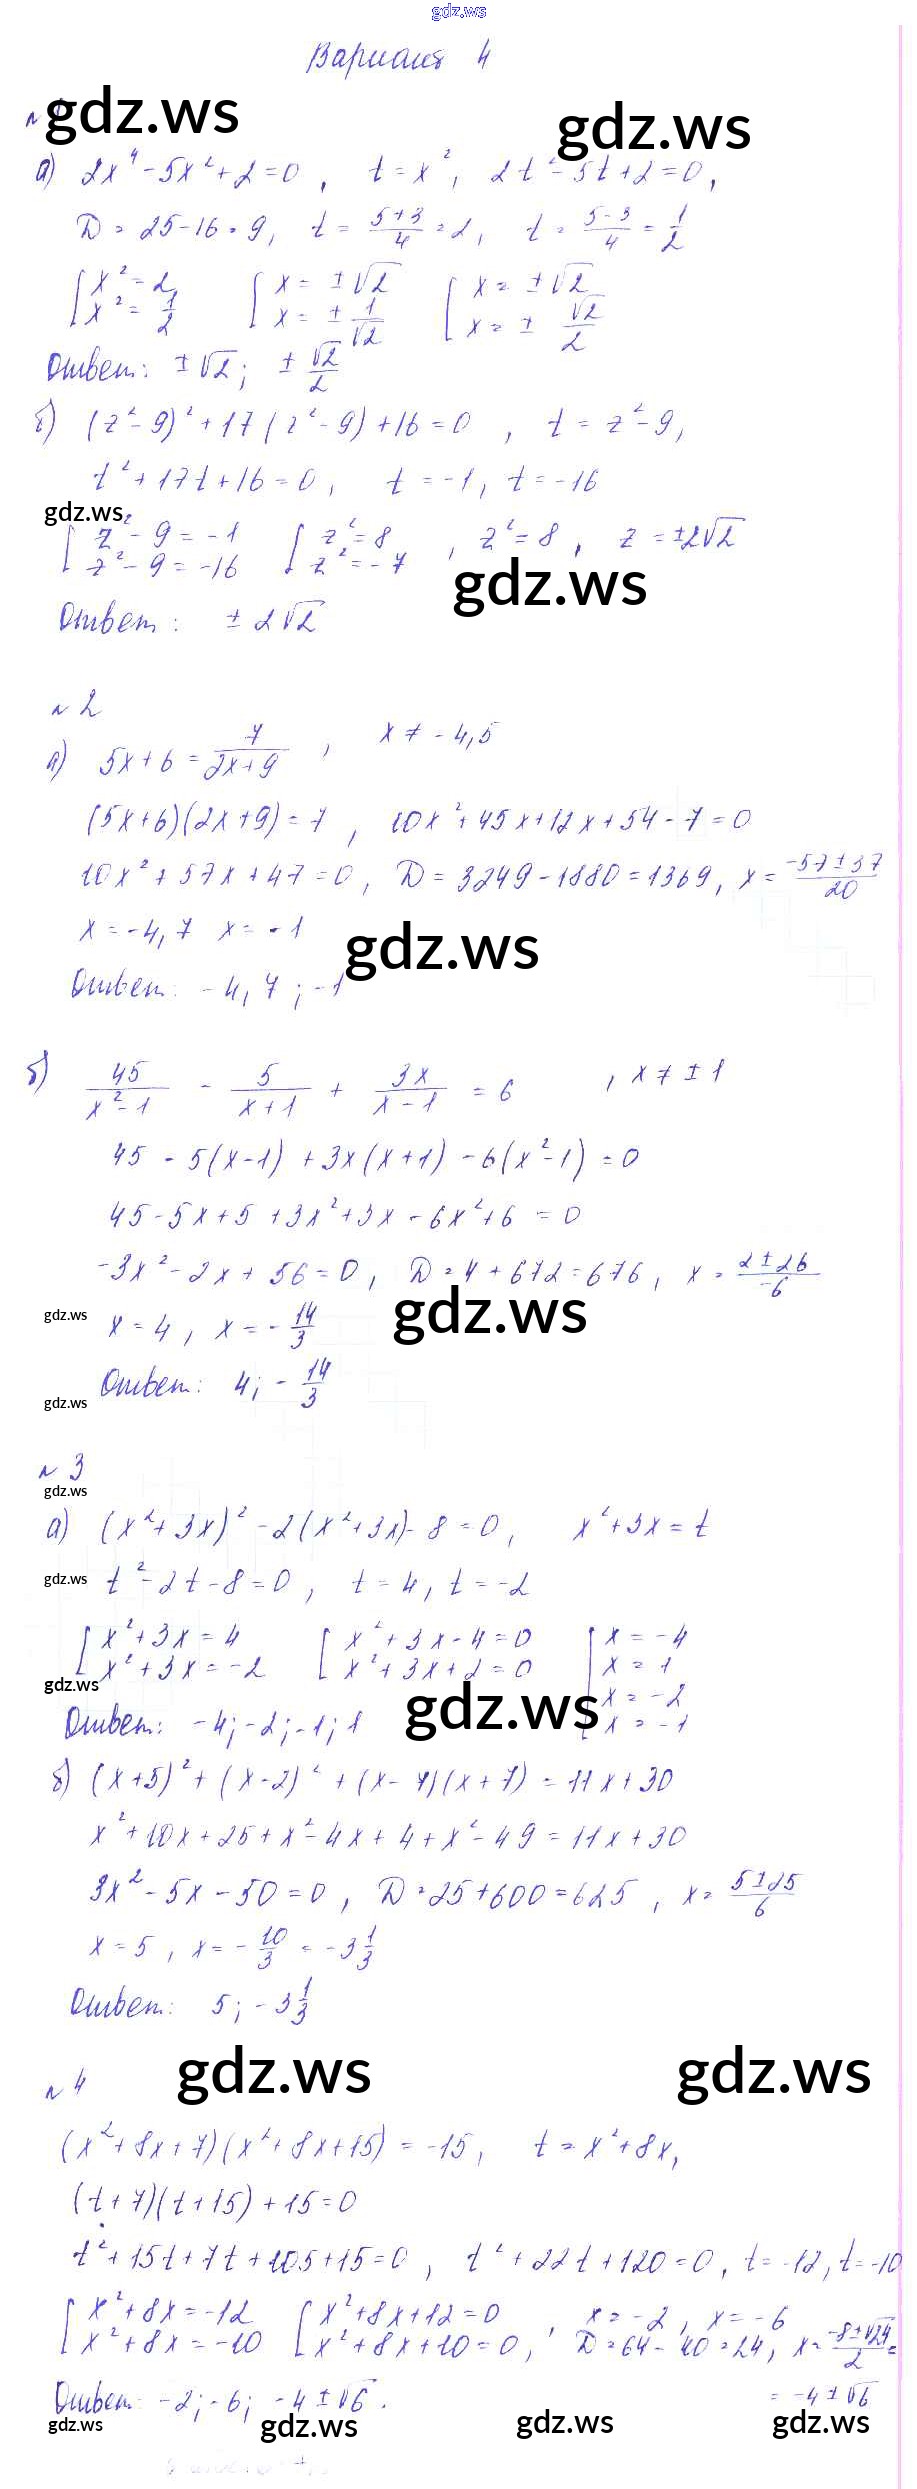 gdz.ws
Вариант 4
gdz.ws gdz.ws
а) 2x⁴ - 5x² + 2 = 0 , t = x², 2t² - 5t + 2 = 0 ,
D = 25 - 16 = 9, t = (5+3)/4 = 2, t = (5-3)/4 = 1/2
[ x² = 2, x² = 1/2 [ x = ±√2 x = ± 1/√2 [ x = ±√2 x = ± √2/2
Ответ: ±√2; ± √2/2
б) (z² - 9)² + 17(z² - 9) + 16 = 0 , t = z² - 9,
t² + 17t + 16 = 0, t = -1, t = -16
gdz.ws
[ z² - 9 = -1 z² - 9 = -16 [ z² = 8 z² = -7 , z² = 8 , z = ±2√2
gdz.ws
Ответ: ± 2√2
№ 2
а) 5x + 6 = 7/(2x+9) , x ≠ -4,5
(5x+6)(2x+9) = 7 , 10x² + 45x + 12x + 54 - 7 = 0
10x² + 57x + 47 = 0, D = 3249 - 1880 = 1369, x = (-57±37)/20
x = -4,7 x = -1
gdz.ws
Ответ: -4,7; -1
б) 45/(x²-1) - 5/(x+1) + 3x/(x-1) = 6 , x ≠ ±1
45 - 5(x-1) + 3x(x+1) - 6(x²-1) = 0
45 - 5x + 5 + 3x² + 3x - 6x² + 6 = 0
-3x² - 2x + 56 = 0, D = 4 + 672 = 676, x = (2±26)/-6
gdz.ws gdz.ws
x = 4, x = -14/3
Ответ: 4; -14/3
gdz.ws
№ 3
gdz.ws
а) (x²+3x)² - 2(x²+3x) - 8 = 0, x²+3x = t
gdz.ws t² - 2t - 8 = 0, t = 4, t = -2
[ x²+3x = 4 x²+3x = -2 [ x²+3x-4 = 0 x²+3x+2 = 0 [ x = -4 x = 1 x = -2 x = -1
gdz.ws gdz.ws
Ответ: -4; -2; -1; 1
б) (x+5)² + (x-2)² + (x-7)(x+7) = 11x + 30
x² + 10x + 25 + x² - 4x + 4 + x² - 49 = 11x + 30
3x² - 5x - 50 = 0, D = 25 + 600 = 625, x = (5±25)/6
x = 5, x = -10/3 = -3 1/3
Ответ: 5; -3 1/3
gdz.ws gdz.ws
№ 4
(x²+8x+7)(x²+8x+15) = -15, t = x²+8x,
(t+7)(t+15) + 15 = 0
t² + 15t + 7t + 105 + 15 = 0, t² + 22t + 120 = 0, t = -12, t = -10
[ x²+8x = -12 x²+8x = -10 [ x²+8x+12 = 0 x²+8x+10 = 0, , x = -2, x = -6 D = 64 - 40 = 24, x = (-8±√24)/2 =
= -4±√6
Ответ: -2; -6; -4±√6.
gdz.ws gdz.ws gdz.ws gdz.ws